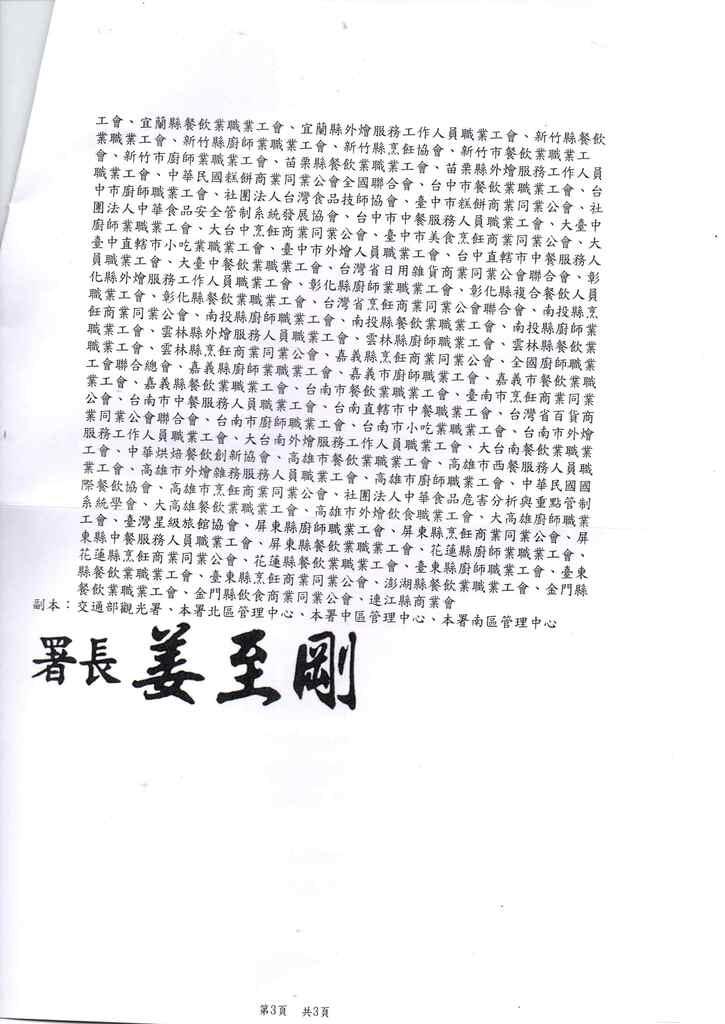 工會、宜蘭縣餐飲業職業工會、宜蘭縣外燴服務工作人員職業工會、新竹縣餐飲
業職業工會、新竹縣廚師業職業工會、新竹縣烹飪協會、新竹市餐飲業職業工
會、新竹市廚師業職業工會、苗栗縣餐飲業職業工會、苗栗縣外燴服務工作人員
職業工會、中華民國糕餅商業同業公會全國聯合會、台中市餐飲業職業工會、台
中市廚師職業工會、社團法人台灣食品技師協會、臺中市糕餅商業同業公會、社
團法人中華食品安全管制系統發展協會、台中市中餐服務人員職業工會、大臺中
廚師業職業工會、大台中烹飪商業同業公會、臺中市美食烹飪商業同業公會、大
臺中直轄市小吃業職業工會、臺中市外燴人員職業工會、台中直轄市中餐服務人
員職業工會、大臺中餐飲業職業工會、台灣省日用雜貨商業同業公會聯合會、彰
化縣外燴服務工作人員職業工會、彰化縣廚師業職業工會、彰化縣複合餐飲人員
職業工會、彰化縣餐飲業職業工會、台灣省烹飪商業同業公會聯合會、南投縣烹
飪商業同業公會、南投縣廚師職業工會、南投縣餐飲業職業工會、南投縣廚師業
職業工會、雲林縣外燴服務人員職業工會、雲林縣廚師職業工會、雲林縣餐飲業
職業工會、雲林縣烹飪商業同業公會、嘉義縣烹飪商業同業公會、全國廚師職業
工會聯合總會、嘉義縣廚師業職業工會、嘉義市廚師職業工會、嘉義市餐飲業職
業工會、嘉義縣餐飲業職業工會、台南市餐飲業職業工會、臺南市烹飪商業同業
公會、台南市中餐服務人員職業工會、台南直轄市中餐職業工會、台灣省百貨商
業同業公會聯合會、台南市廚師職業工會、台南市小吃業職業工會、台南市外燴
服務工作人員職業工會、大台南外燴服務工作人員職業工會、大台南餐飲業職業
工會、中華烘焙餐飲創新協會、高雄市餐飲業職業工會、高雄市西餐服務人員職
業工會、高雄市外燴雜務服務人員職業工會、高雄市廚師職業工會、中華民國國
際餐飲協會、高雄市烹飪商業同業公會、社團法人中華食品危害分析與重點管制
系統學會、大高雄餐飲業職業工會、高雄市外燴飲食職業工會、大高雄廚師職業
工會、臺灣星級旅館協會、屏東縣廚師職業工會、屏東縣烹飪商業同業公會、屏
東縣中餐服務人員職業工會、屏東縣餐飲業職業工會、花蓮縣廚師業職業工會、
花蓮縣烹飪商業同業公會、花蓮縣餐飲業職業工會、臺東縣廚師職業工會、臺東
縣餐飲業職業工會、臺東縣烹飪商業同業公會、澎湖縣餐飲業職業工會、金門縣
餐飲業職業工會、金門縣飲食商業同業公會、連江縣商業會
副本：交通部觀光署、本署北區管理中心、本署中區管理中心、本署南區管理中心
署長 姜至剛
第3頁 共3頁